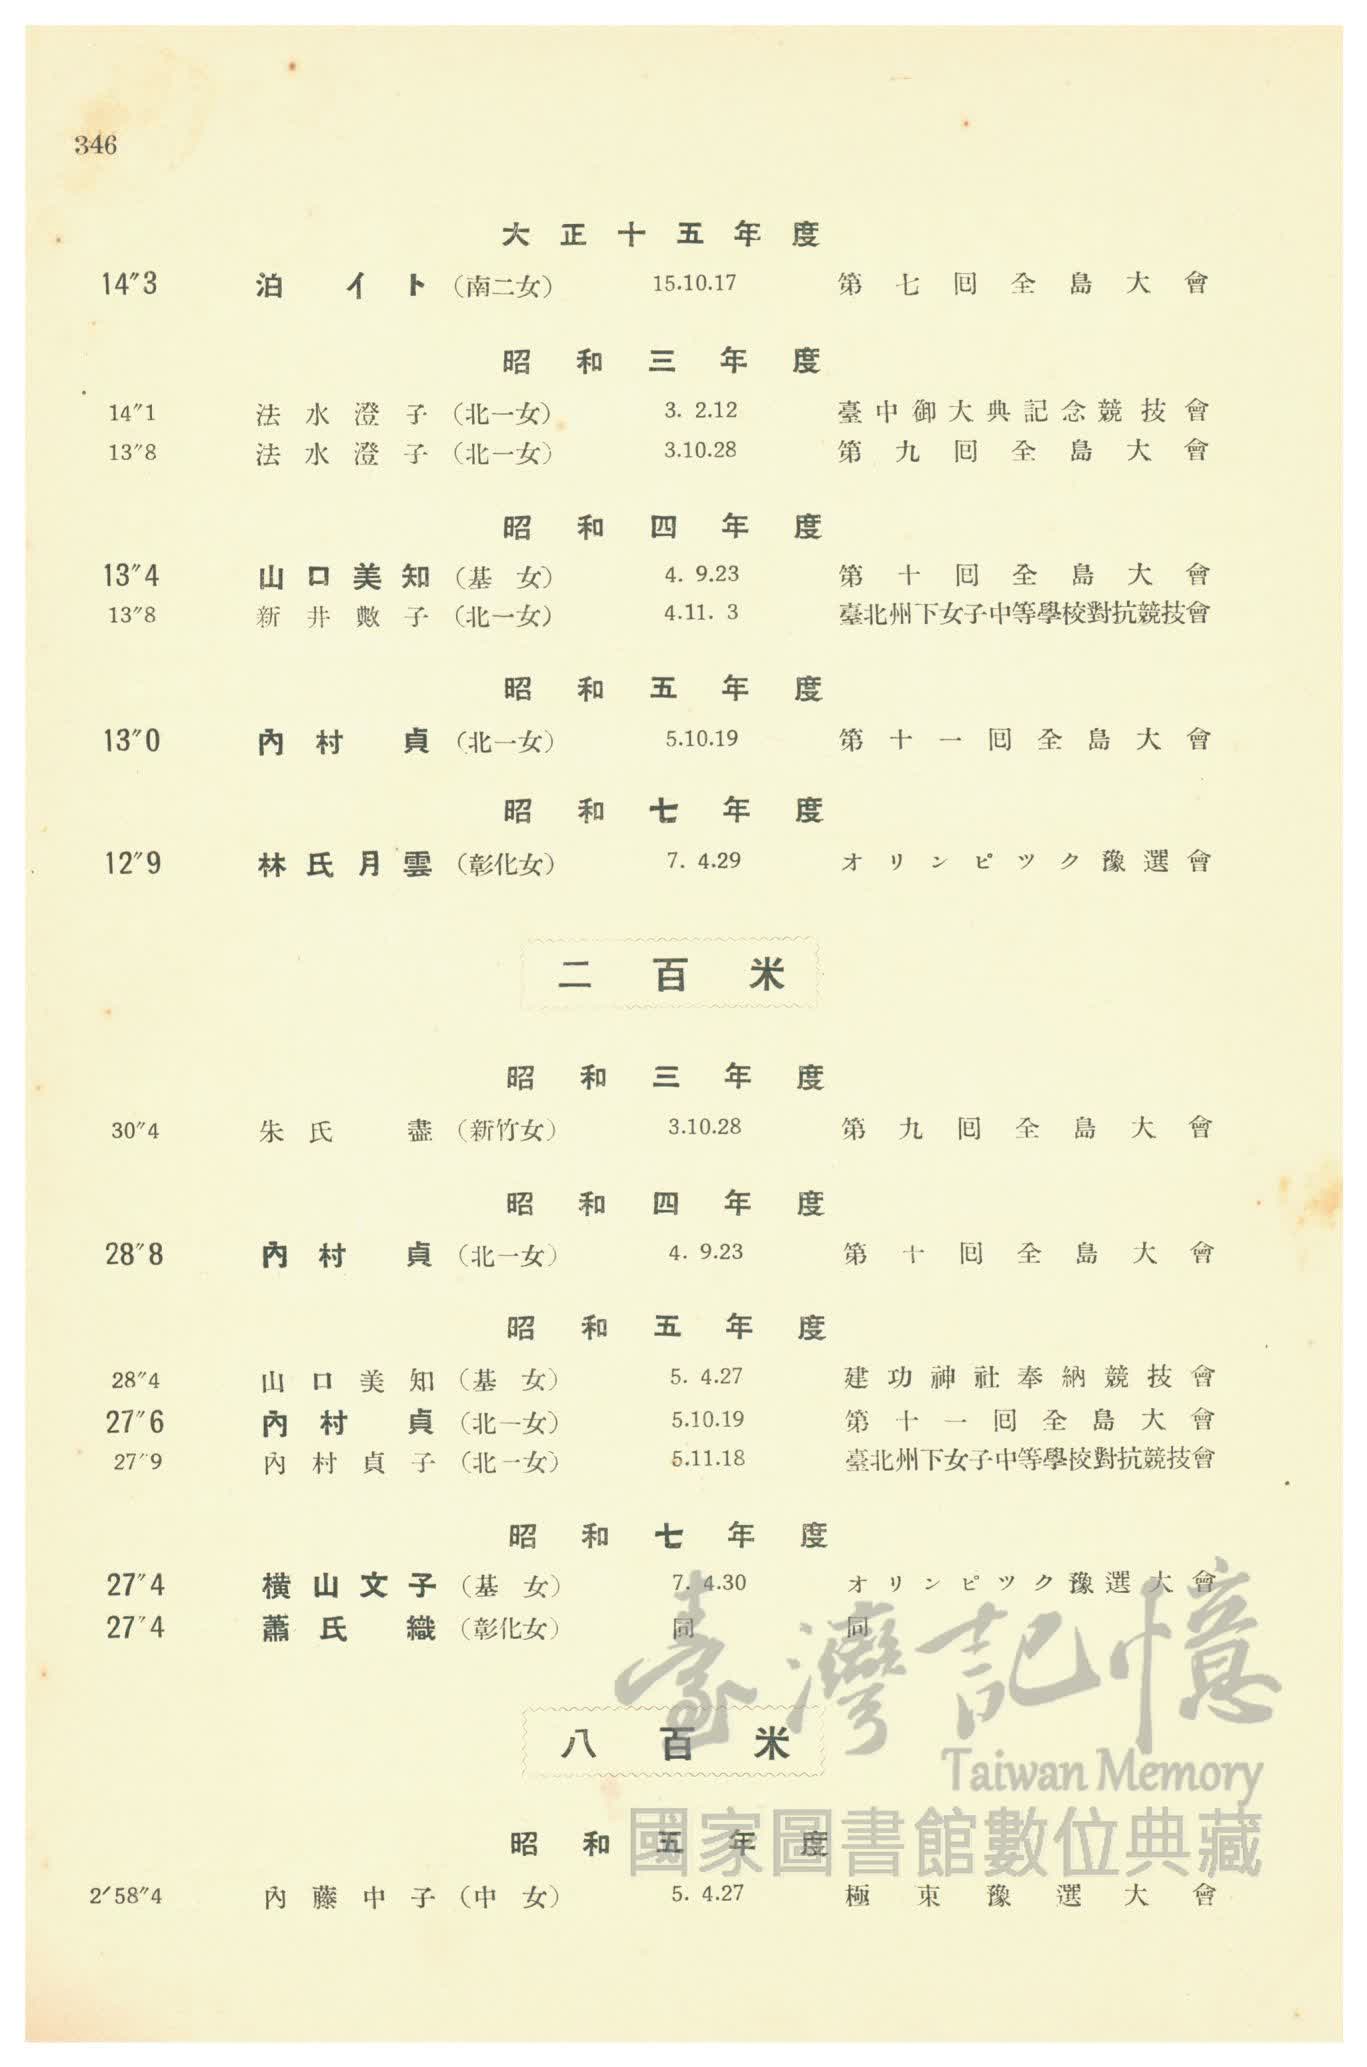 346
大正十五年度
14″3 泊イト（南二女） 15.10.17 第七囘全島大會
昭和三年度
14″1 法水澄子（北一女） 3. 2.12 臺中御大典記念競技會
13″8 法水澄子（北一女） 3.10.28 第九囘全島大會
昭和四年度
13″4 山口美知（基女） 4. 9.23 第十囘全島大會
13″8 新井敷子（北一女） 4.11. 3 臺北州下女子中等學校對抗競技會
昭和五年度
13″0 內村貞（北一女） 5.10.19 第十一囘全島大會
昭和七年度
12″9 林氏月雲（彰化女） 7. 4.29 オリンピツク豫選會
二百米
昭和三年度
30″4 朱氏盡（新竹女） 3.10.28 第九囘全島大會
昭和四年度
28″8 內村貞（北一女） 4. 9.23 第十囘全島大會
昭和五年度
28″4 山口美知（基女） 5. 4.27 建功神社奉納競技會
27″6 內村貞（北一女） 5.10.19 第十一囘全島大會
27″9 內村貞子（北一女） 5.11.18 臺北州下女子中等學校對抗競技會
昭和七年度
27″4 橫山文子（基女） 7. 4.30 オリンピツク豫選大會
27″4 蕭氏織（彰化女） 同 同
八百米
昭和五年度
2′58″4 內藤中子（中女） 5. 4.27 極東豫選大會
臺灣記憶
Taiwan Memory
國家圖書館數位典藏